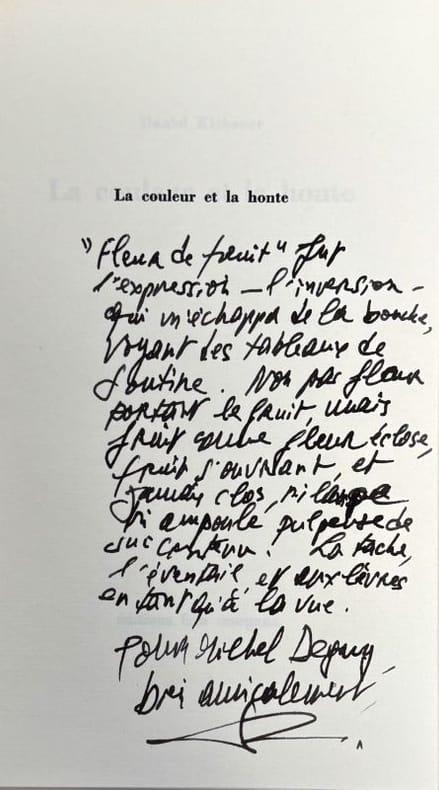 La couleur et la honte
"Fleur de fruit" fut
l'expression – l'inversion –
qui m'échappa de la bouche,
voyant des tableaux de
Soutine. Non pas fleur
portant le fruit, mais
fruit comme fleur éclose,
fruit s'ouvrant, et
jamais clos, ni
ni ampoule pulpeuse de
suc contenu. La tache,
l'éventail et aux lèvres
en tant qu'à la vue.
pour Michel Deguy,
bien amicalement